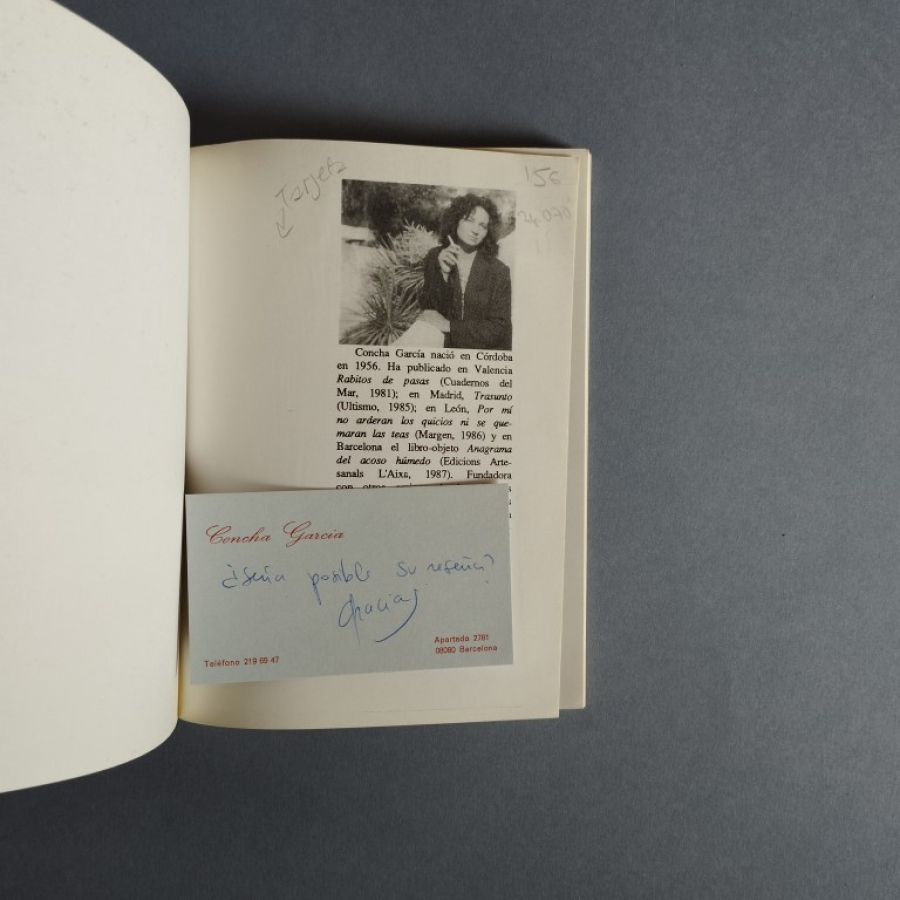 Tarjeta
15€
24.070
Concha García nació en Córdoba
en 1956. Ha publicado en Valencia
Rabitos de pasas (Cuadernos del
Mar, 1981); en Madrid, Trasunto
(Ultismo, 1985); en León, Por mí
no arderan los quicios ni se que-
maran las teas (Margen, 1986) y en
Barcelona el libro-objeto Anagrama
del acoso húmedo (Edicions Arte-
sanals L'Aixa, 1987). Fundadora
con otros
Concha García
¿Sería posible su reseña?
Gracias
Teléfono 219 69 47
Apartado 2781
08080 Barcelona